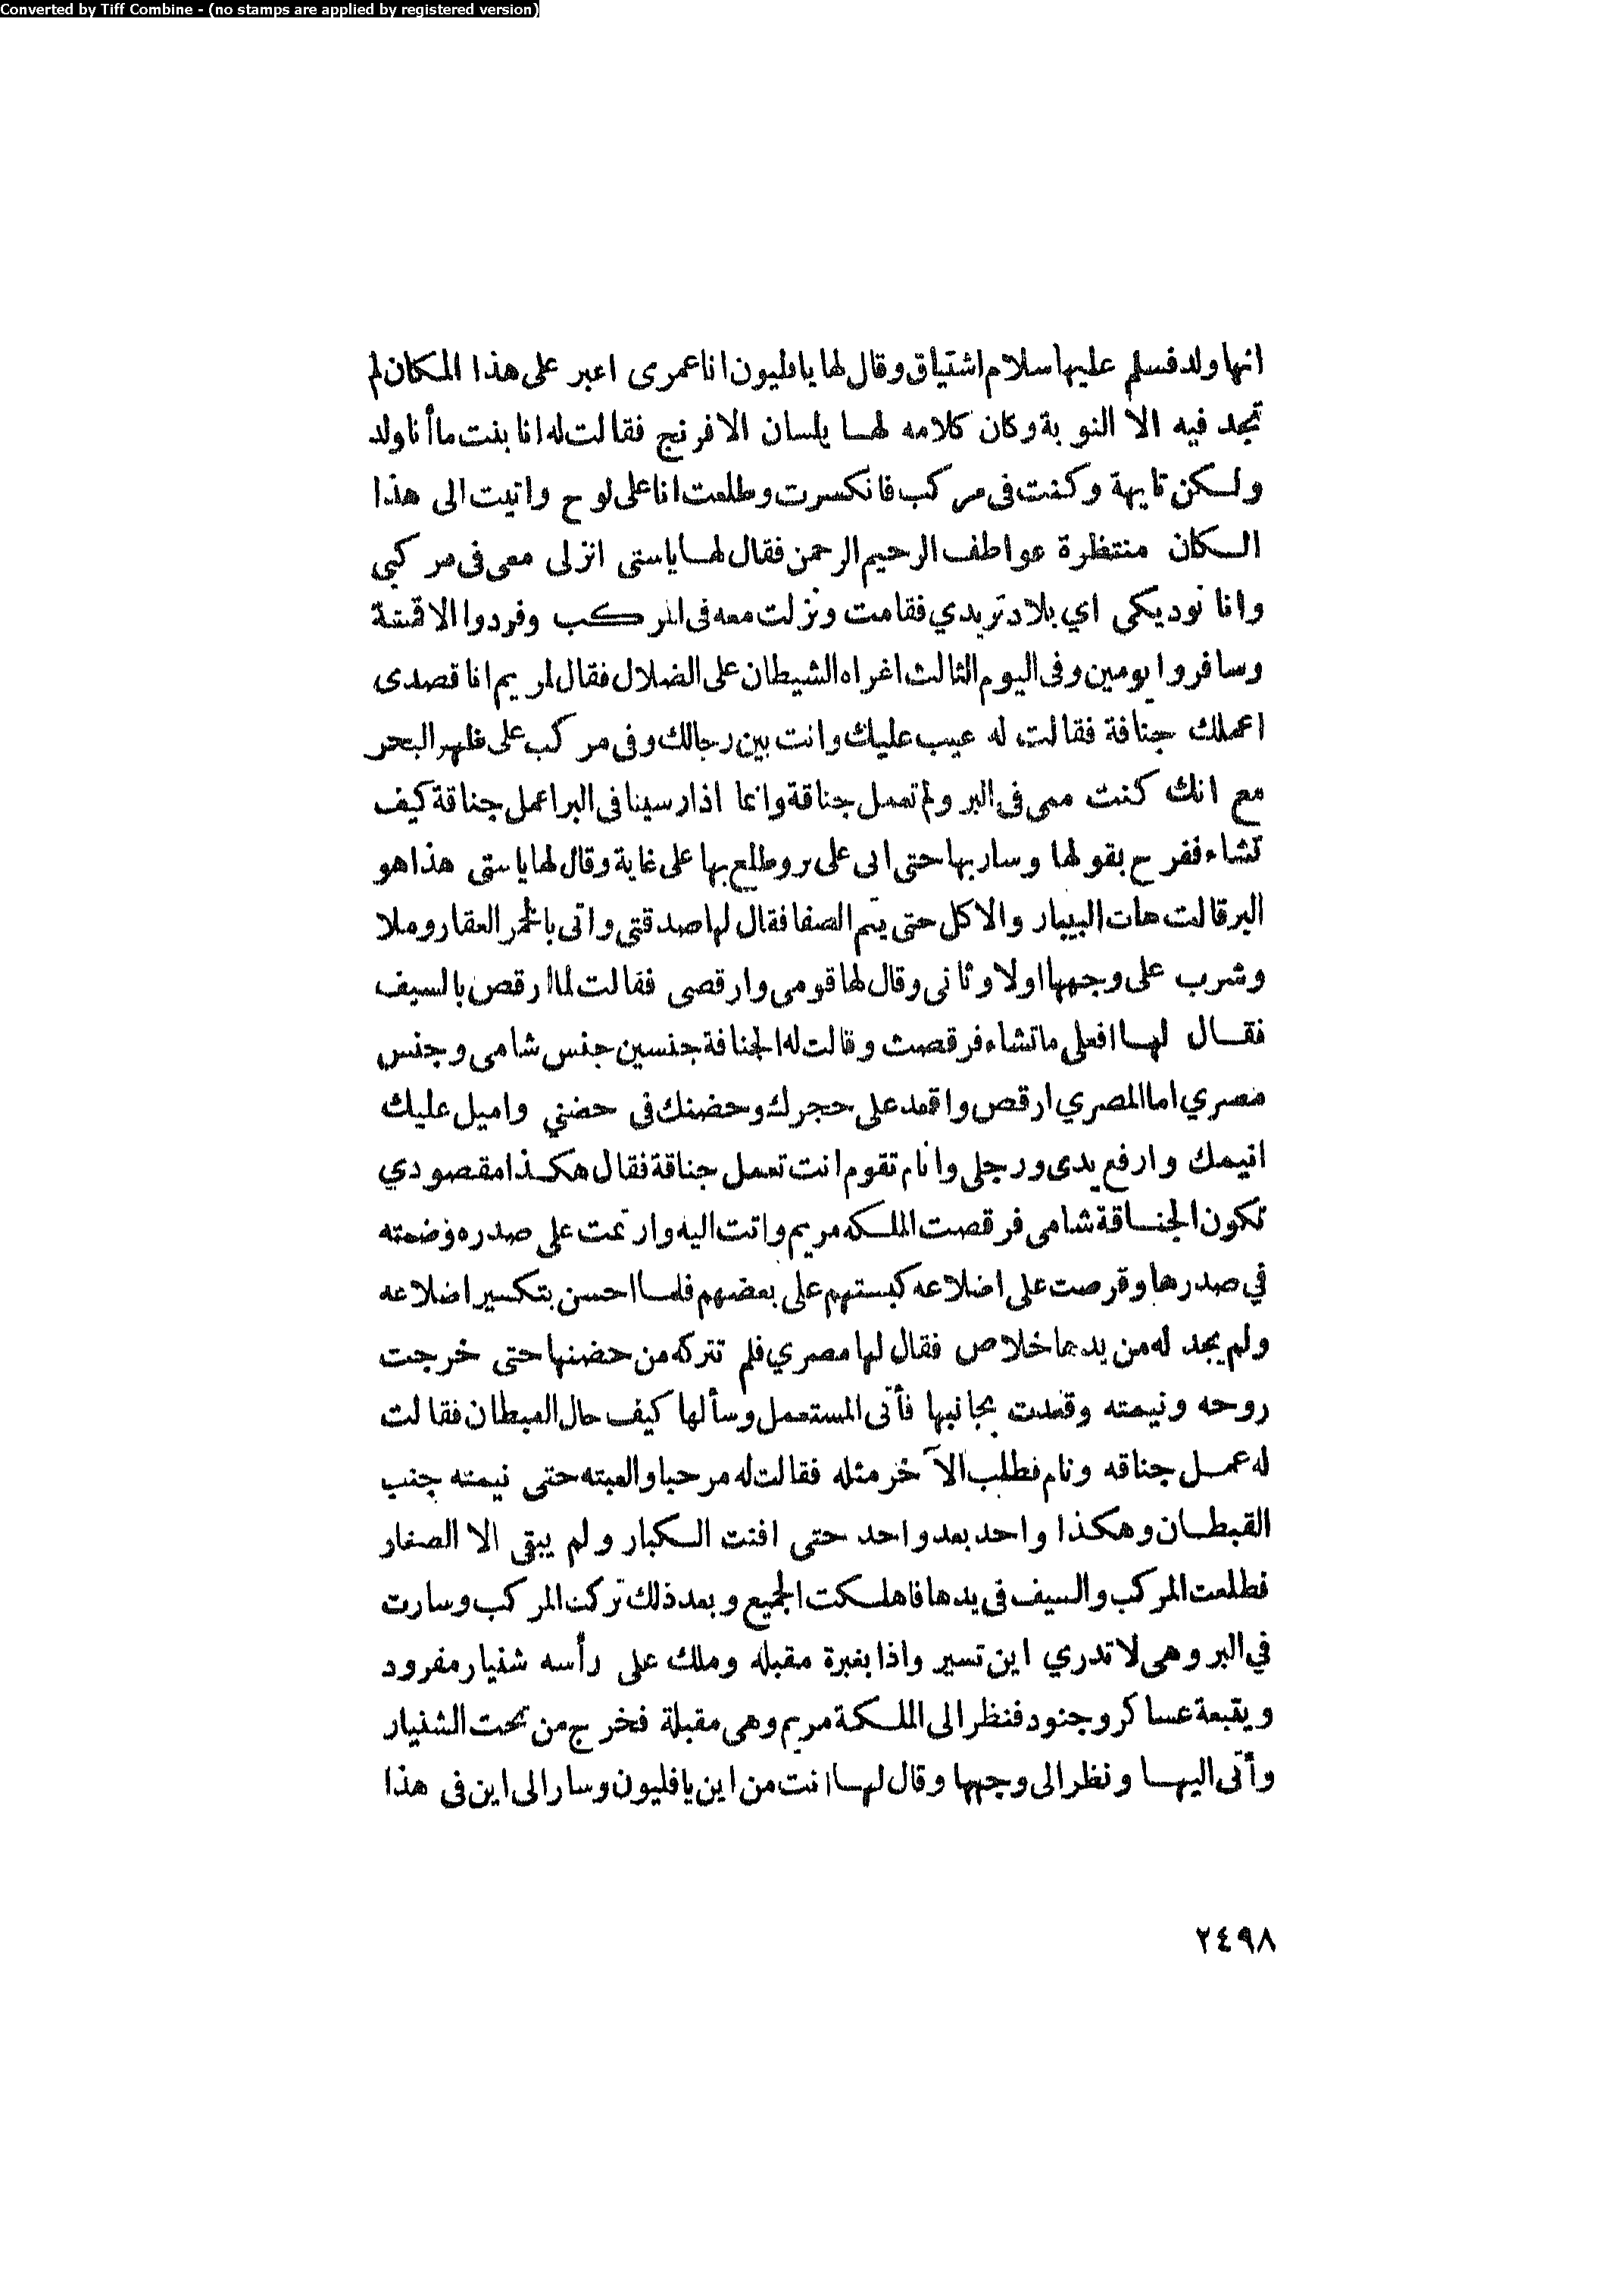 Converted by Tiff Combine - (no stamps are applied by registered version)
انها ولد فسلم عليها سلام اشتياق وقال لها يافليون انا عمرى اعبر على هذا المكان لم
تجد فيه الا النوبة وكان كلامه لها يلسان الافرنج فقالت له انا بنت ما أنا ولد
ولكن تايهة وكنت فى مركب فانكسرت وطلعت انا على لوح واتيت الى هذا
المكان منتظرة عواطف الرحيم الرحمن فقال لها ياستى انزلى معى فى مركبى
وانا نوديكى اي بلاد تريدي فقامت ونزلت معه فى المركب وفردوا الاقمشة
وسافروا يومين وفى اليوم الثالث اغراه الشيطان على الضلال فقال لمريم انا قصدى
اعملك جنافة فقالت له عيب عليك وانت بين رجالك وفى مركب على ظهر البحر
مع انك كنت معى فى البر ولم تعمل جناقة وانما اذا رسينا فى البر اعمل جناقة كيف
تشاء ففرح بقولها وسار بها حتى اتى على بر وطلع بها على غاية وقال لها ياستى هذا هو
البر قالت هات البيبار والاكل حتى يتم الصفا فقال لها صدقتى واتى بالخمر العقار وملا
وشرب على وجهها اولا وثانى وقال لها قومى وارقصى فقالت لما ارقص بالسيف
فقال لها افعلى ماتشاء فرقصت وقالت له الجنافة جنسين جنس شامى وجنس
مصري اما المصري ارقص واقعد على حجرك وحضنك فى حضني واميل عليك
انيمك وارفع يدى ورجلى وانام تقوم انت تعمل جناقة فقال هكذا مقصودي
تكون الجناقة شامى فرقصت الملكه مريم واتت اليه وارتمت على صدره وضمته
في صدرها وقرصت على اضلاعه كبستهم على بعضهم فلما احسن بتكسير اضلاعه
ولم يجد له من يدها خلاص فقال لها مصري فلم تتركه من حضنها حتى خرجت
روحه ونيمته وقعدت بجانبها فأتى المستعمل وسألها كيف حال القبطان فقالت
له عمل جناقه ونام فطلب الآخر مثله فقالت له مرحبا والعبته حتى نيمته جنب
القبطان وهكذا واحد بعد واحد حتى افنت الكبار ولم يبقى الا الصغار
فطلعت المركب والسيف فى يدها فاهلكت الجميع وبعد ذلك تركت المركب وسارت
في البر وهى لا تدري اين تسير واذا بغبرة مقبله وملك على رأسه شنيار مفرود
ويقبعة عساكر وجنود فنظر الى الملكة مريم وهى مقبلة فخرج من تحت الشنيار
وأتى اليها ونظر الى وجهها وقال لها انت من اين يافليون وسار الى اين فى هذا
٢٤٩٨